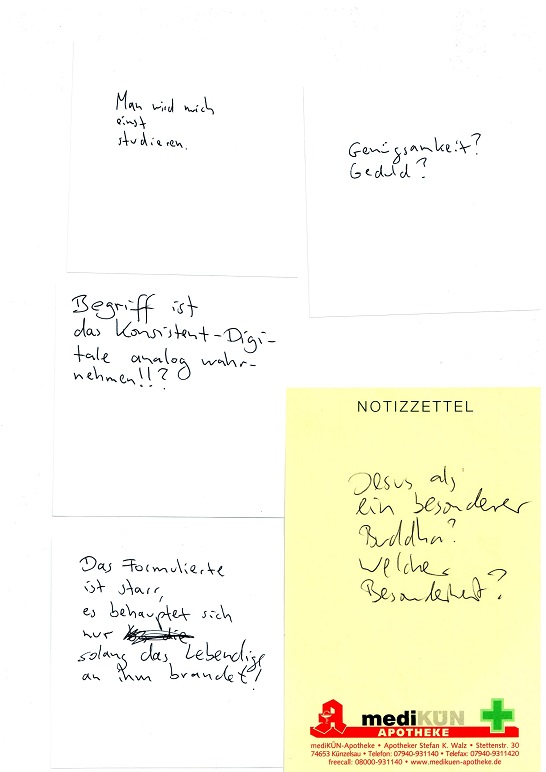 Man wird mich
einst
studieren.
Genügsamkeit?
Geduld?
Begriff ist
das Konsistent-Digi-
tale analog wahr-
nehmen!!?
NOTIZZETTEL
Jesus als
ein besonderer
Buddha?
Welcher
Besonderheit?
mediKÜN
APOTHEKE
mediKÜN-Apotheke • Apotheker Stefan K. Walz • Stettenstr. 30
74653 Künzelsau • Telefon: 07940-931140 • Telefax: 07940-9311420
freecall: 08000-931140 • www.medikuen-apotheke.de
Das Formulierte
ist starr,
es behauptet sich
nur
solang das Lebendige
an ihm brandet!